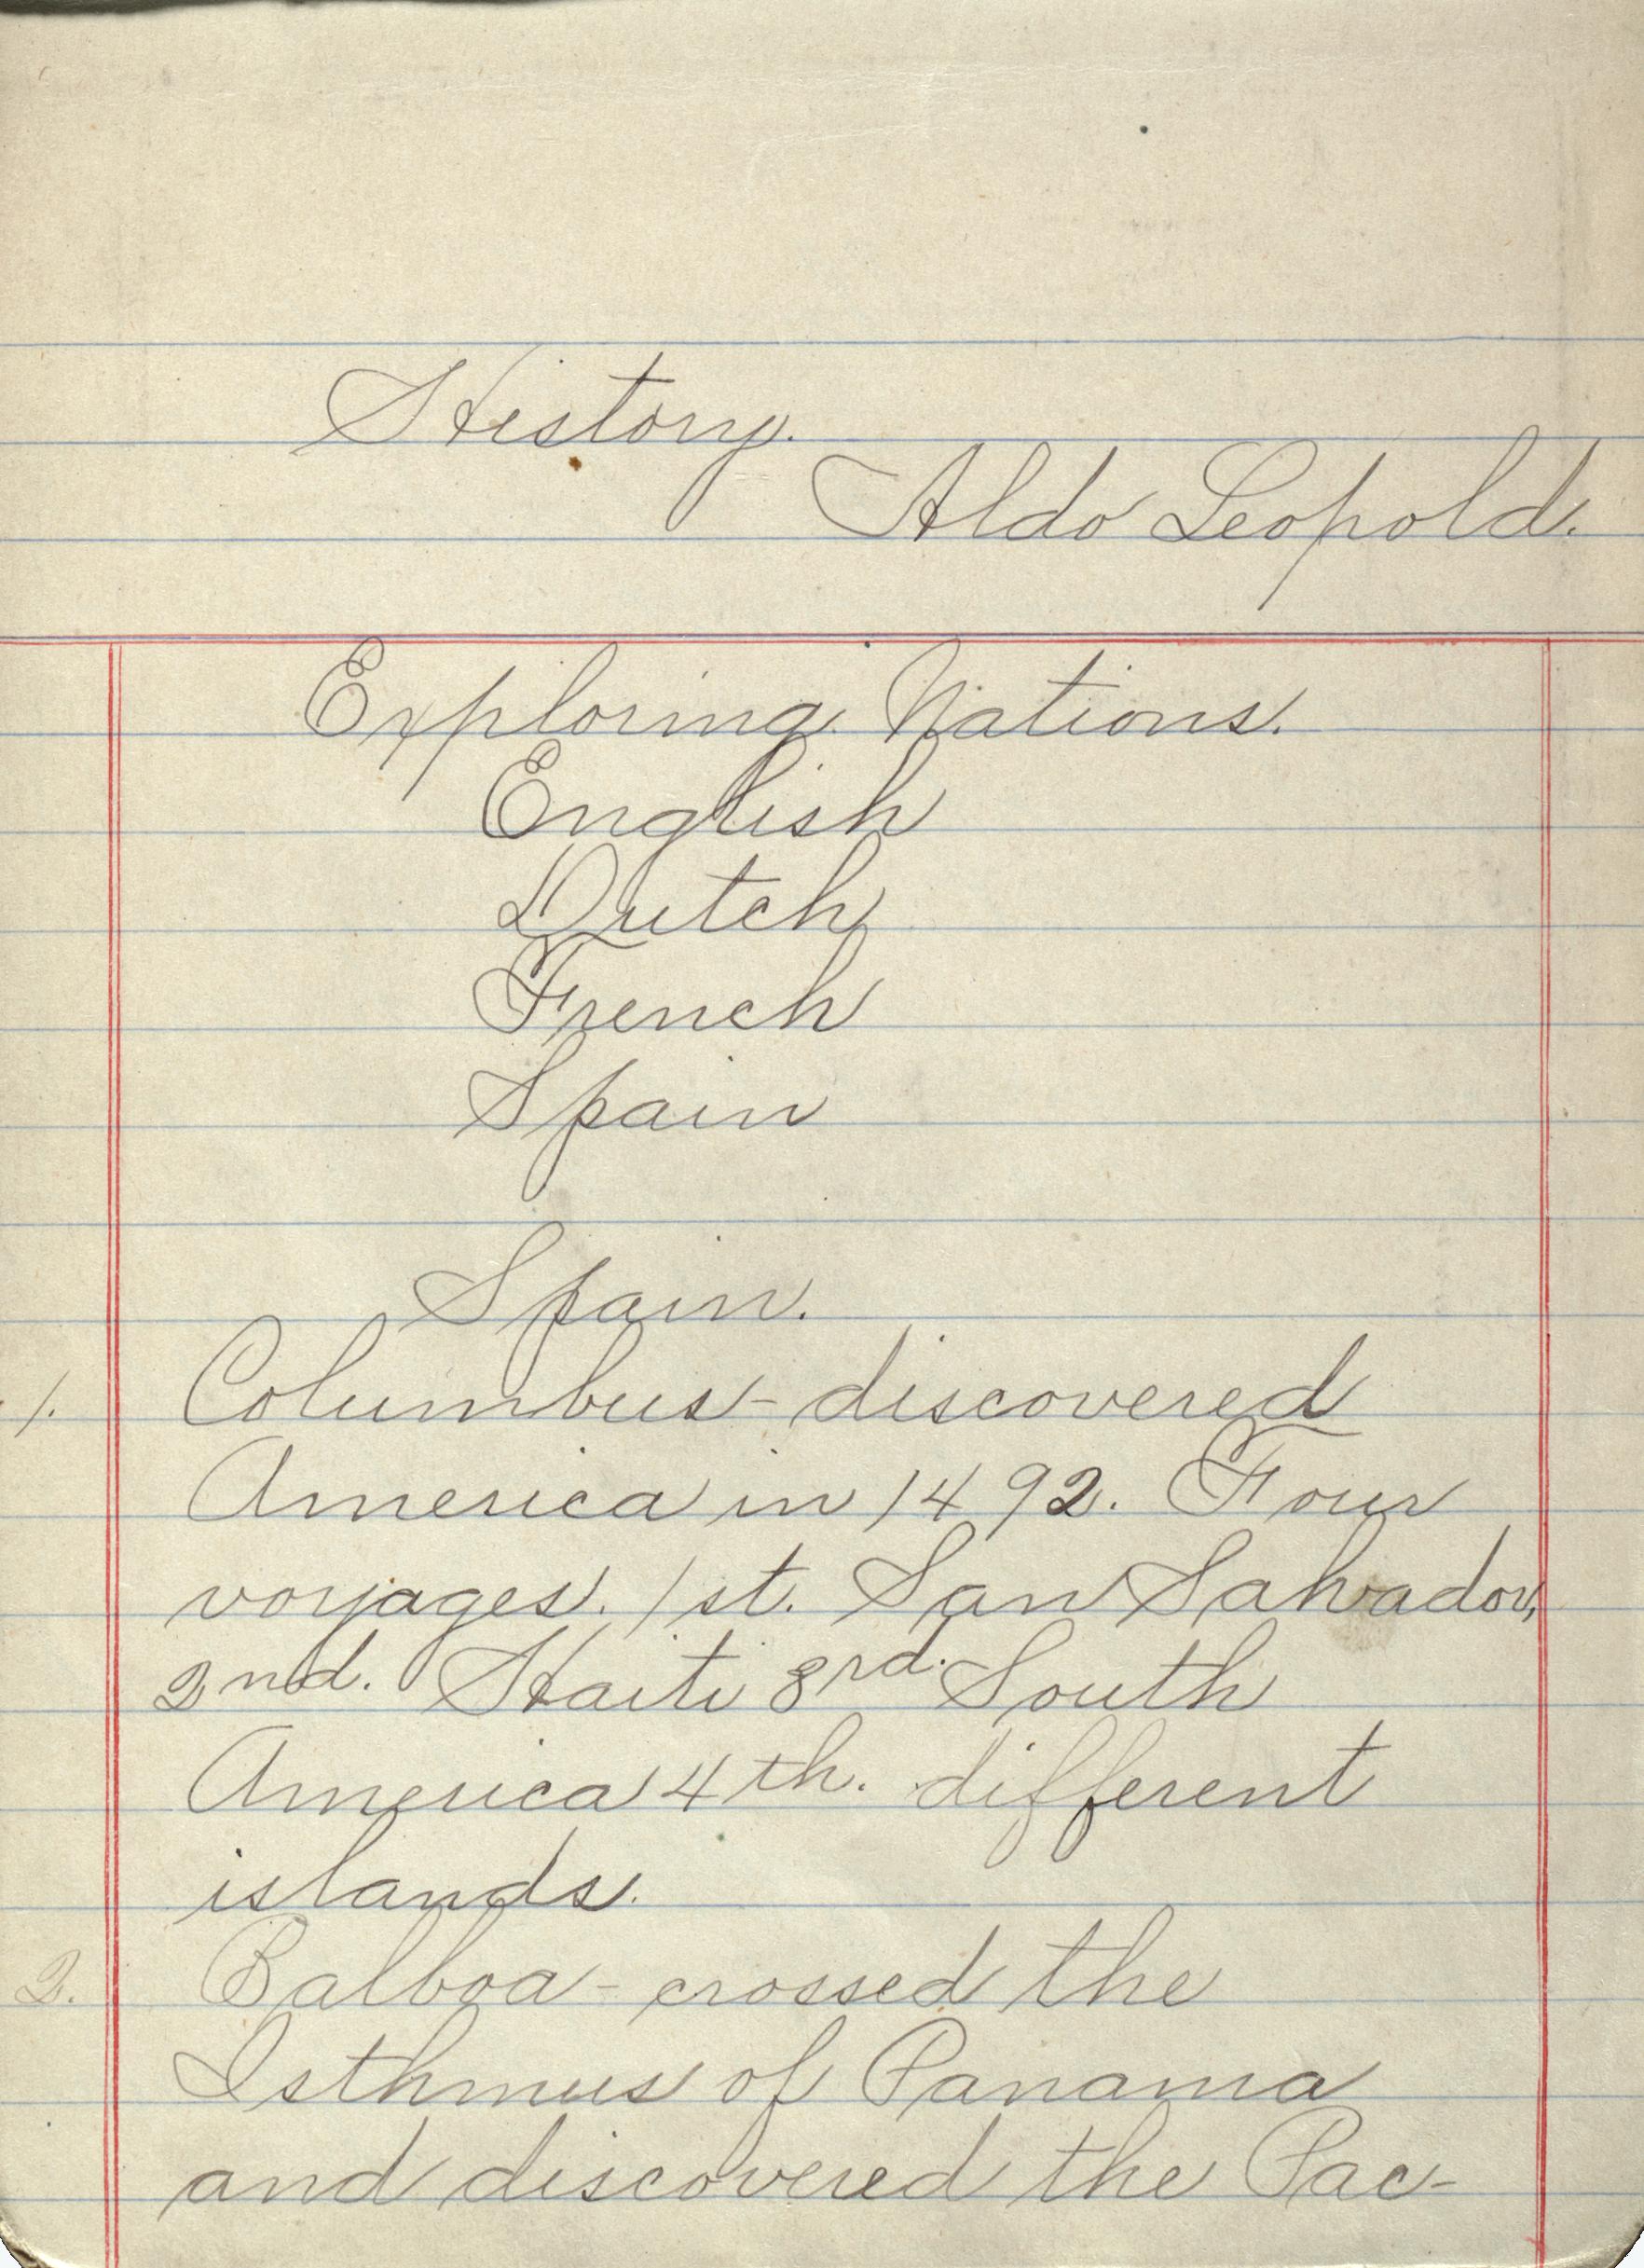 History.
Aldo Leopold.
Exploring Nations.
English
Dutch
French
Spain
Spain.
1. Columbus - discovered
America in 1492. Four
voyages. 1st. San Salvador,
2nd. Haiti 3rd. South
America 4th. different
islands.
2. Balboa - crossed the
Isthmus of Panama
and discovered the Pac-